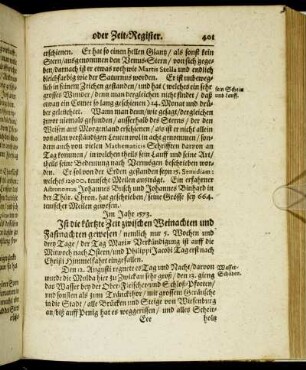 oder Zeit-Register. 401
erschienen. Er hat so einen hellen Glantz / als sonst kein
Stern / ausgenommen den Venus-Stern / von sich gege-
ben / darnach ist er etwas roth wie Martis Stella und endlich
bleichfarbig wie der Saturnus worden. Er ist unbeweg-
lich in seinem Zeichen gestanden / und hat (welches ein sehr
grosses Wunder / denn man dergleichen nicht findet / daß
etwan ein Comet so lang geschienen) 14. Monat und drü-
ber geleuchtet. Wo man dann / wie gesagt / dergleichen
zuvor niemals gefunden / ausserhalb des Sterns / der den
Weisen aus Morgenland erschienen / als ist er nicht allein
von allen verständigen Leuten wol in acht genommen / son-
dern auch von vielen Mathematicis Schrifften darvon an
Tag kommen / in welchen theils sein Lauff und seine Art /
theils seine Bedeutung nach Vermögen beschrieben wor-
den. Er ist von der Erden gestanden seyn 15. Semidiam:
welches 12900. teutsche Meilen austräget. Ein erfahrner
Astronomus Johannes Busch und Johannes Binhard in
der Thür. Chron. hat geschrieben / seine Grösse sey 664.
teutscher Meilen gewesen.
sein Schein
und Lauff.
Im Jahr 1573.
Ist die kürtzte Zeit zwischen Weinachten und
Faßnachten gewesen / nemlich nur 5. Wochen und
drey Tage / der Tag Mariä Verkündigung ist auff die
Mitwoch nach Ostern / und Philippi Jacobi Tag erst nach
Christi Himmelfahrt eingefallen.
Den 12. Augusti regnet er Tag und Nacht / darvon
das Wasser bey der Ober-Fleischer- und Schloß-Pforten /
und sonsten als zum Tränckthor / mit grossem Geräusche
in die Stadt / alle Brücken und Stege von Wiesenburg
an / biß auff Penig hat es weggerissen / und alles Scheit-
Wasser-
Schaden.
Eee
holtz